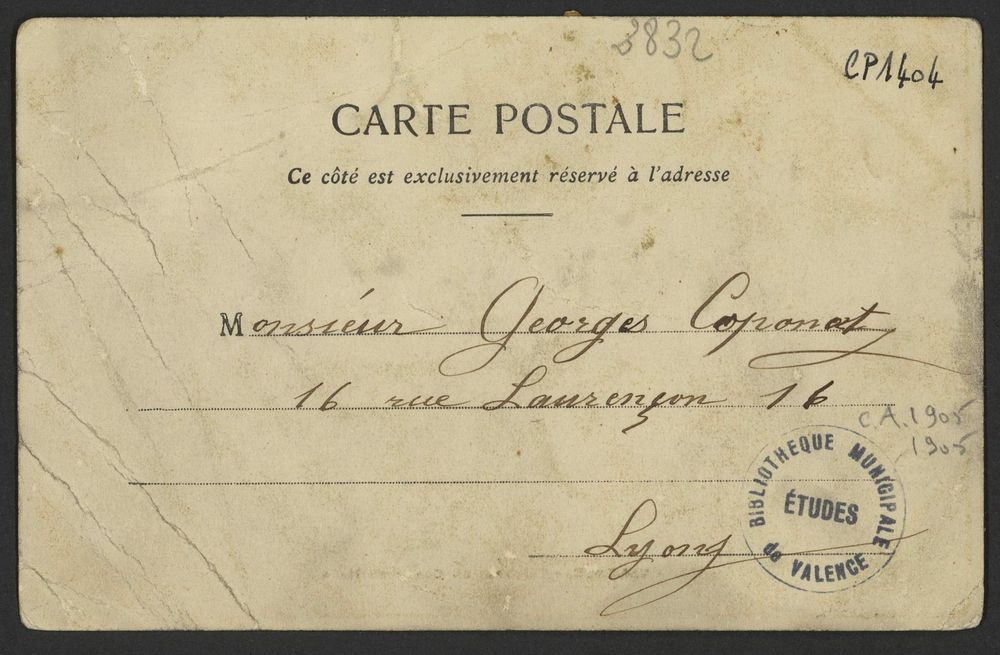 3832
CP1404
CARTE POSTALE
Ce côté est exclusivement réservé à l'adresse
Monsieur Georges Coponat
16 rue Laurençon 16
C.A. 1905
1905
BIBLIOTHEQUE MUNICIPALE
ÉTUDES
de VALENCE
Lyon